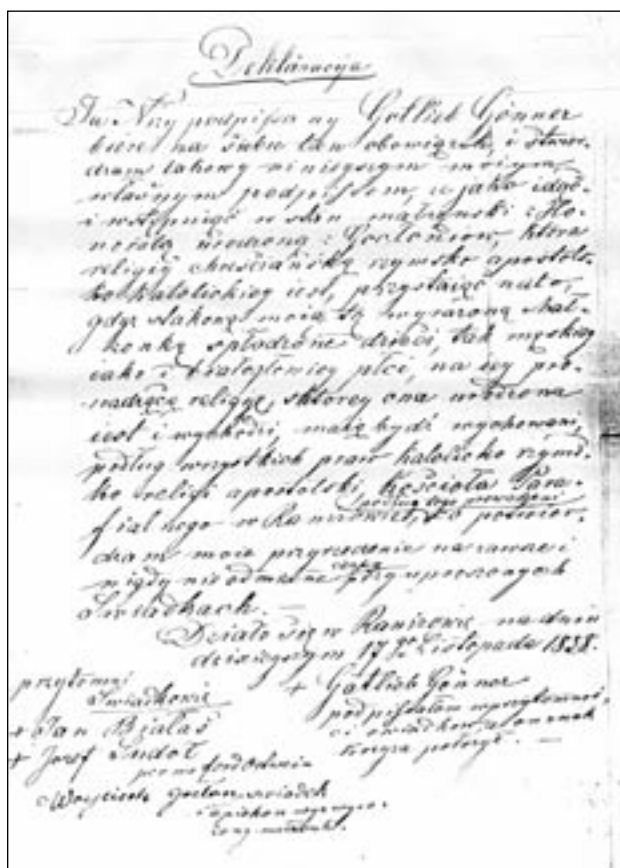 Deklaracyja
Ja Niży podpisany Gottlieb Gönner
bierę na siebie ten obowiązek, i stwier-
dzam takowy niniejszym moim
własnym podpissem, iż jako idąc
i wstępując w stan małżenski z Ho-
noratą urodzoną z Gorlaniow, ktora
religiy chrześciańską rzymsko apostols-
ko Katolickiey iest, przystaięć na to,
gdyż z moią Mał-
żonką spłodzone dzieci, tak męskiey
iako i białogłowiey płci, na iey pro-
wadzącą religyę, z ktorey ona urodzona
iest i wychodzi, maią bydź wychowani,
podług wszystkich praw Katolicko rzyms-
ko religi apostolski, Kościoła Para-
fialnego w Raniżowie, to potwier-
dzam moie przyrzeczenie na zawsze i
nigdy nieodmienne przy uproszonych
Swiadkach. —
Działo się w Raniżowie na dniu
dzisieyszym 17go Listopada 1838.
przytomni
Swiadkowie
+ Jan Bjalas
+ Jozef Sudoł
+ Gottlieb Gönner
podpisałem w przytomnoś-
ci swiadkow, a on znak
krzyża położył. —
Woyciech Gorlan swiadek